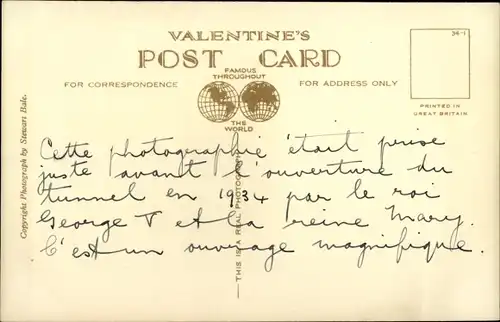 VALENTINE'S
36-1
POST CARD
FAMOUS
THROUGHOUT
FOR CORRESPONDENCE
FOR ADDRESS ONLY
THE
WORLD
PRINTED IN
GREAT BRITAIN
Copyright Photograph by Stewart Bale.
THIS IS A REAL PHOTOGRAPH
Cette photographie était prise
juste avant l'ouverture du
tunnel en 1934 par le roi
George V et la reine Mary.
C'est un ouvrage magnifique.